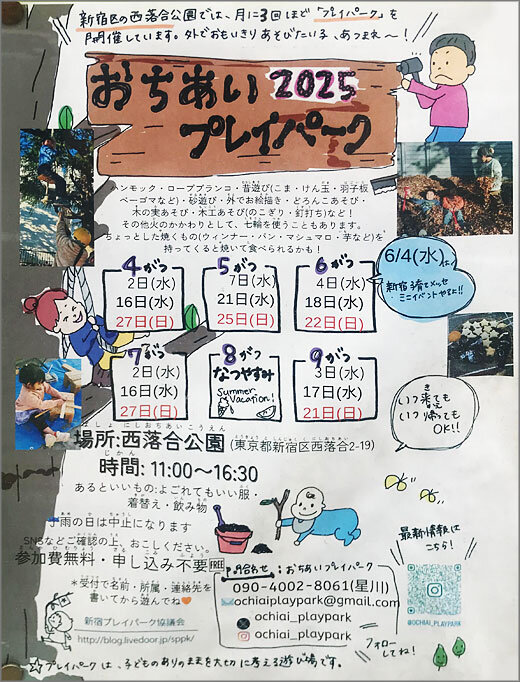 新宿区の西落合公園では、月に3回ほど「プレイパーク」を
開催しています。外でおもいきりあそびたい子、あつまれ〜!
おちあい 2025
プレイパーク
ハンモック・ロープブランコ・昔遊び(こま・けん玉・羽子板
ベーゴマなど)・砂遊び・外でお絵描き・どろんこあそび・
木の実あそび・木工あそび(のこぎり・釘打ち)など!
その他火のかかわりとして、七輪を使うこともあります。
ちょっとした焼くもの(ウィンナー・パン・マシュマロ・芋など)を
持ってくると焼いて食べられるかも!
4がつ
2日(水)
16日(水)
27日(日)
5がつ
7日(水)
21日(水)
25日(日)
6がつ
4日(水)
18日(水)
22日(日)
6/4(水)は、
新宿子育てメッセ
ミニイベントやるよ!!
7がつ
2日(水)
16日(水)
27日(日)
8がつ
なつやすみ
Summer
Vacation!
9がつ
3日(水)
17日(水)
21日(日)
いつ来ても
いつ帰っても
OK!!
場所:西落合公園(東京都新宿区西落合2-19)
時間: 11:00〜16:30
あるといいもの:よごれてもいい服・
着替え・飲み物
雨の日は中止になります
SNSなどご確認の上、おこしください。
参加費無料・申し込み不要
*受付で名前・所属・連絡先を
書いてから遊んでね
新宿プレイパーク協議会
http://blog.livedoor.jp/sppk/
問合わせ:おちあいプレイパーク
090-4002-8061(星川)
ochiaiplaypark@gmail.com
ochiai_playpark
ochiai_playpark
最新情報は
こちら!
@OCHIAI_PLAYPARK
フォロー
してね!
☆プレイパークは、子どものありのままを大切に考える遊び場です。